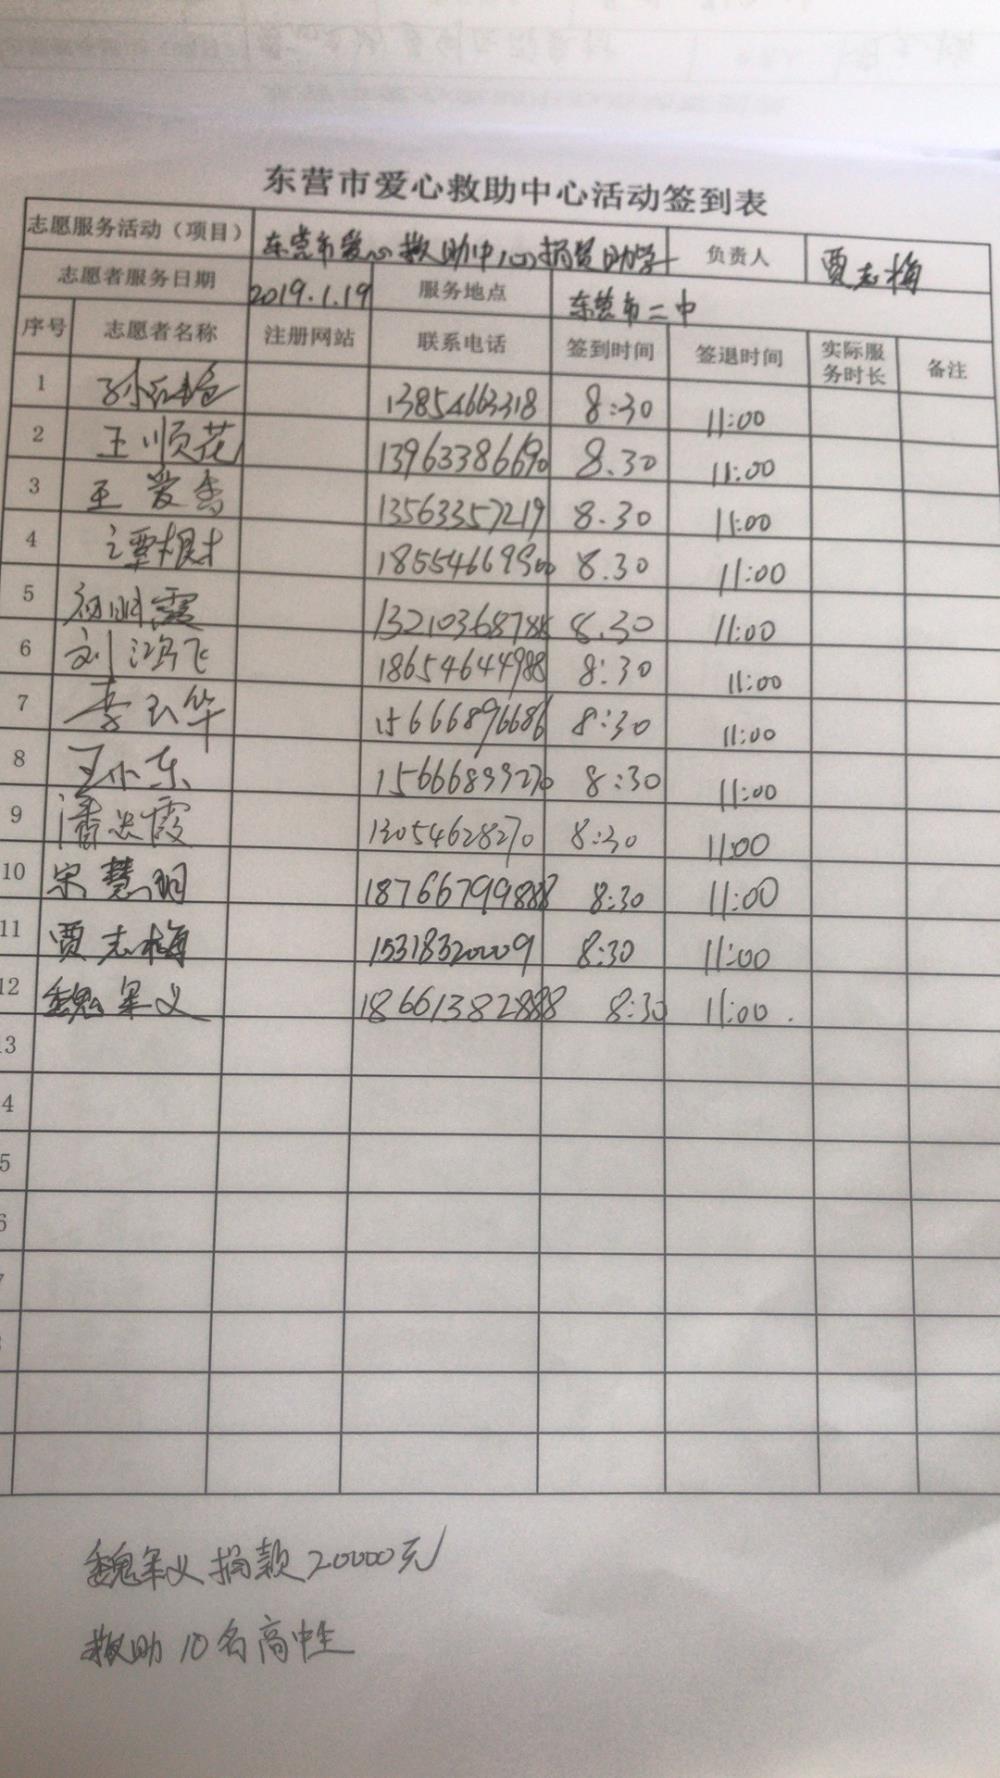 东营市爱心救助中心活动签到表
志愿服务活动（项目） 东营市爱心救助中心捐资助学 负责人 贾志梅
志愿者服务日期 2019.1.19 服务地点 东营市二中
序号 志愿者名称 注册网站 联系电话 签到时间 签退时间 实际服务时长 备注
1 13854663318 8:30 11:00
2 王顺花 13963386690 8.30 11:00
3 王爱香 13563357219 8.30 11:00
4 谭根才 18554669300 8.30 11:00
5 初明霞 8.30 11:00
6 刘鸿飞 18654644988 8:30 11:00
7 李玉华 15666896686 8:30 11:00
8 王小东 15666899270 8:30 11:00
9 潘忠霞 13054628270 8:30 11:00
10 宋慧明 18766799888 8:30 11:00
11 贾志梅 15318320009 8:30 11:00
12 魏军义 18661382888 8:30 11:00.
13
4
5
6
魏军义捐款20000元
救助10名高中生